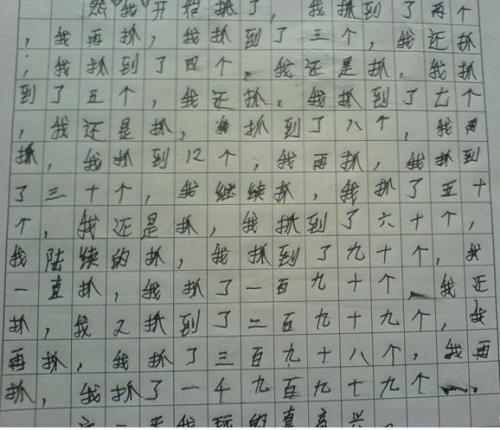 然我开始抓了，我抓到了两个
，我再抓，我抓到了三个，我还抓
，我抓到了四个，我还是抓，我抓
到了五个，我还抓，我抓到了七个
，我还是抓，我抓到了八个，我再
抓，我抓到12个，我再抓，我抓到
了三十个，我继续抓，我抓了五十
个，我还是抓，我抓到了六十个，
我陆续的抓，我抓到了九十个，我
一直抓，我抓了一百九十个，我还
抓，我又抓到了二百九十九个，我
再抓，我抓了三百九十八个，我再
抓，我抓了一千九百九十九个
这一天我玩的真高兴。